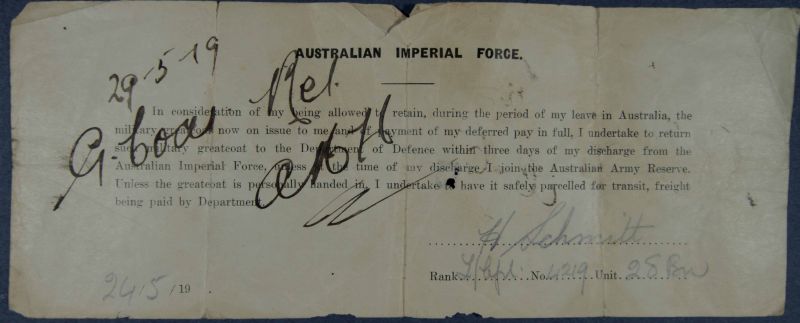 AUSTRALIAN IMPERIAL FORCE.
29-5-19
G. Coat Ret.
In consideration of my being allowed to retain, during the period of my leave in Australia, the
military greatcoat now on issue to me and of payment of my deferred pay in full, I undertake to return
such military greatcoat to the Department of Defence within three days of my discharge from the
Australian Imperial Force, unless at the time of my discharge I join the Australian Army Reserve.
Unless the greatcoat is personally handed in, I undertake to have it safely parcelled for transit, freight
being paid by Department.
H Schmitt
Rank L/Cpl. No. 4219 Unit 28 Bn
24/5/19